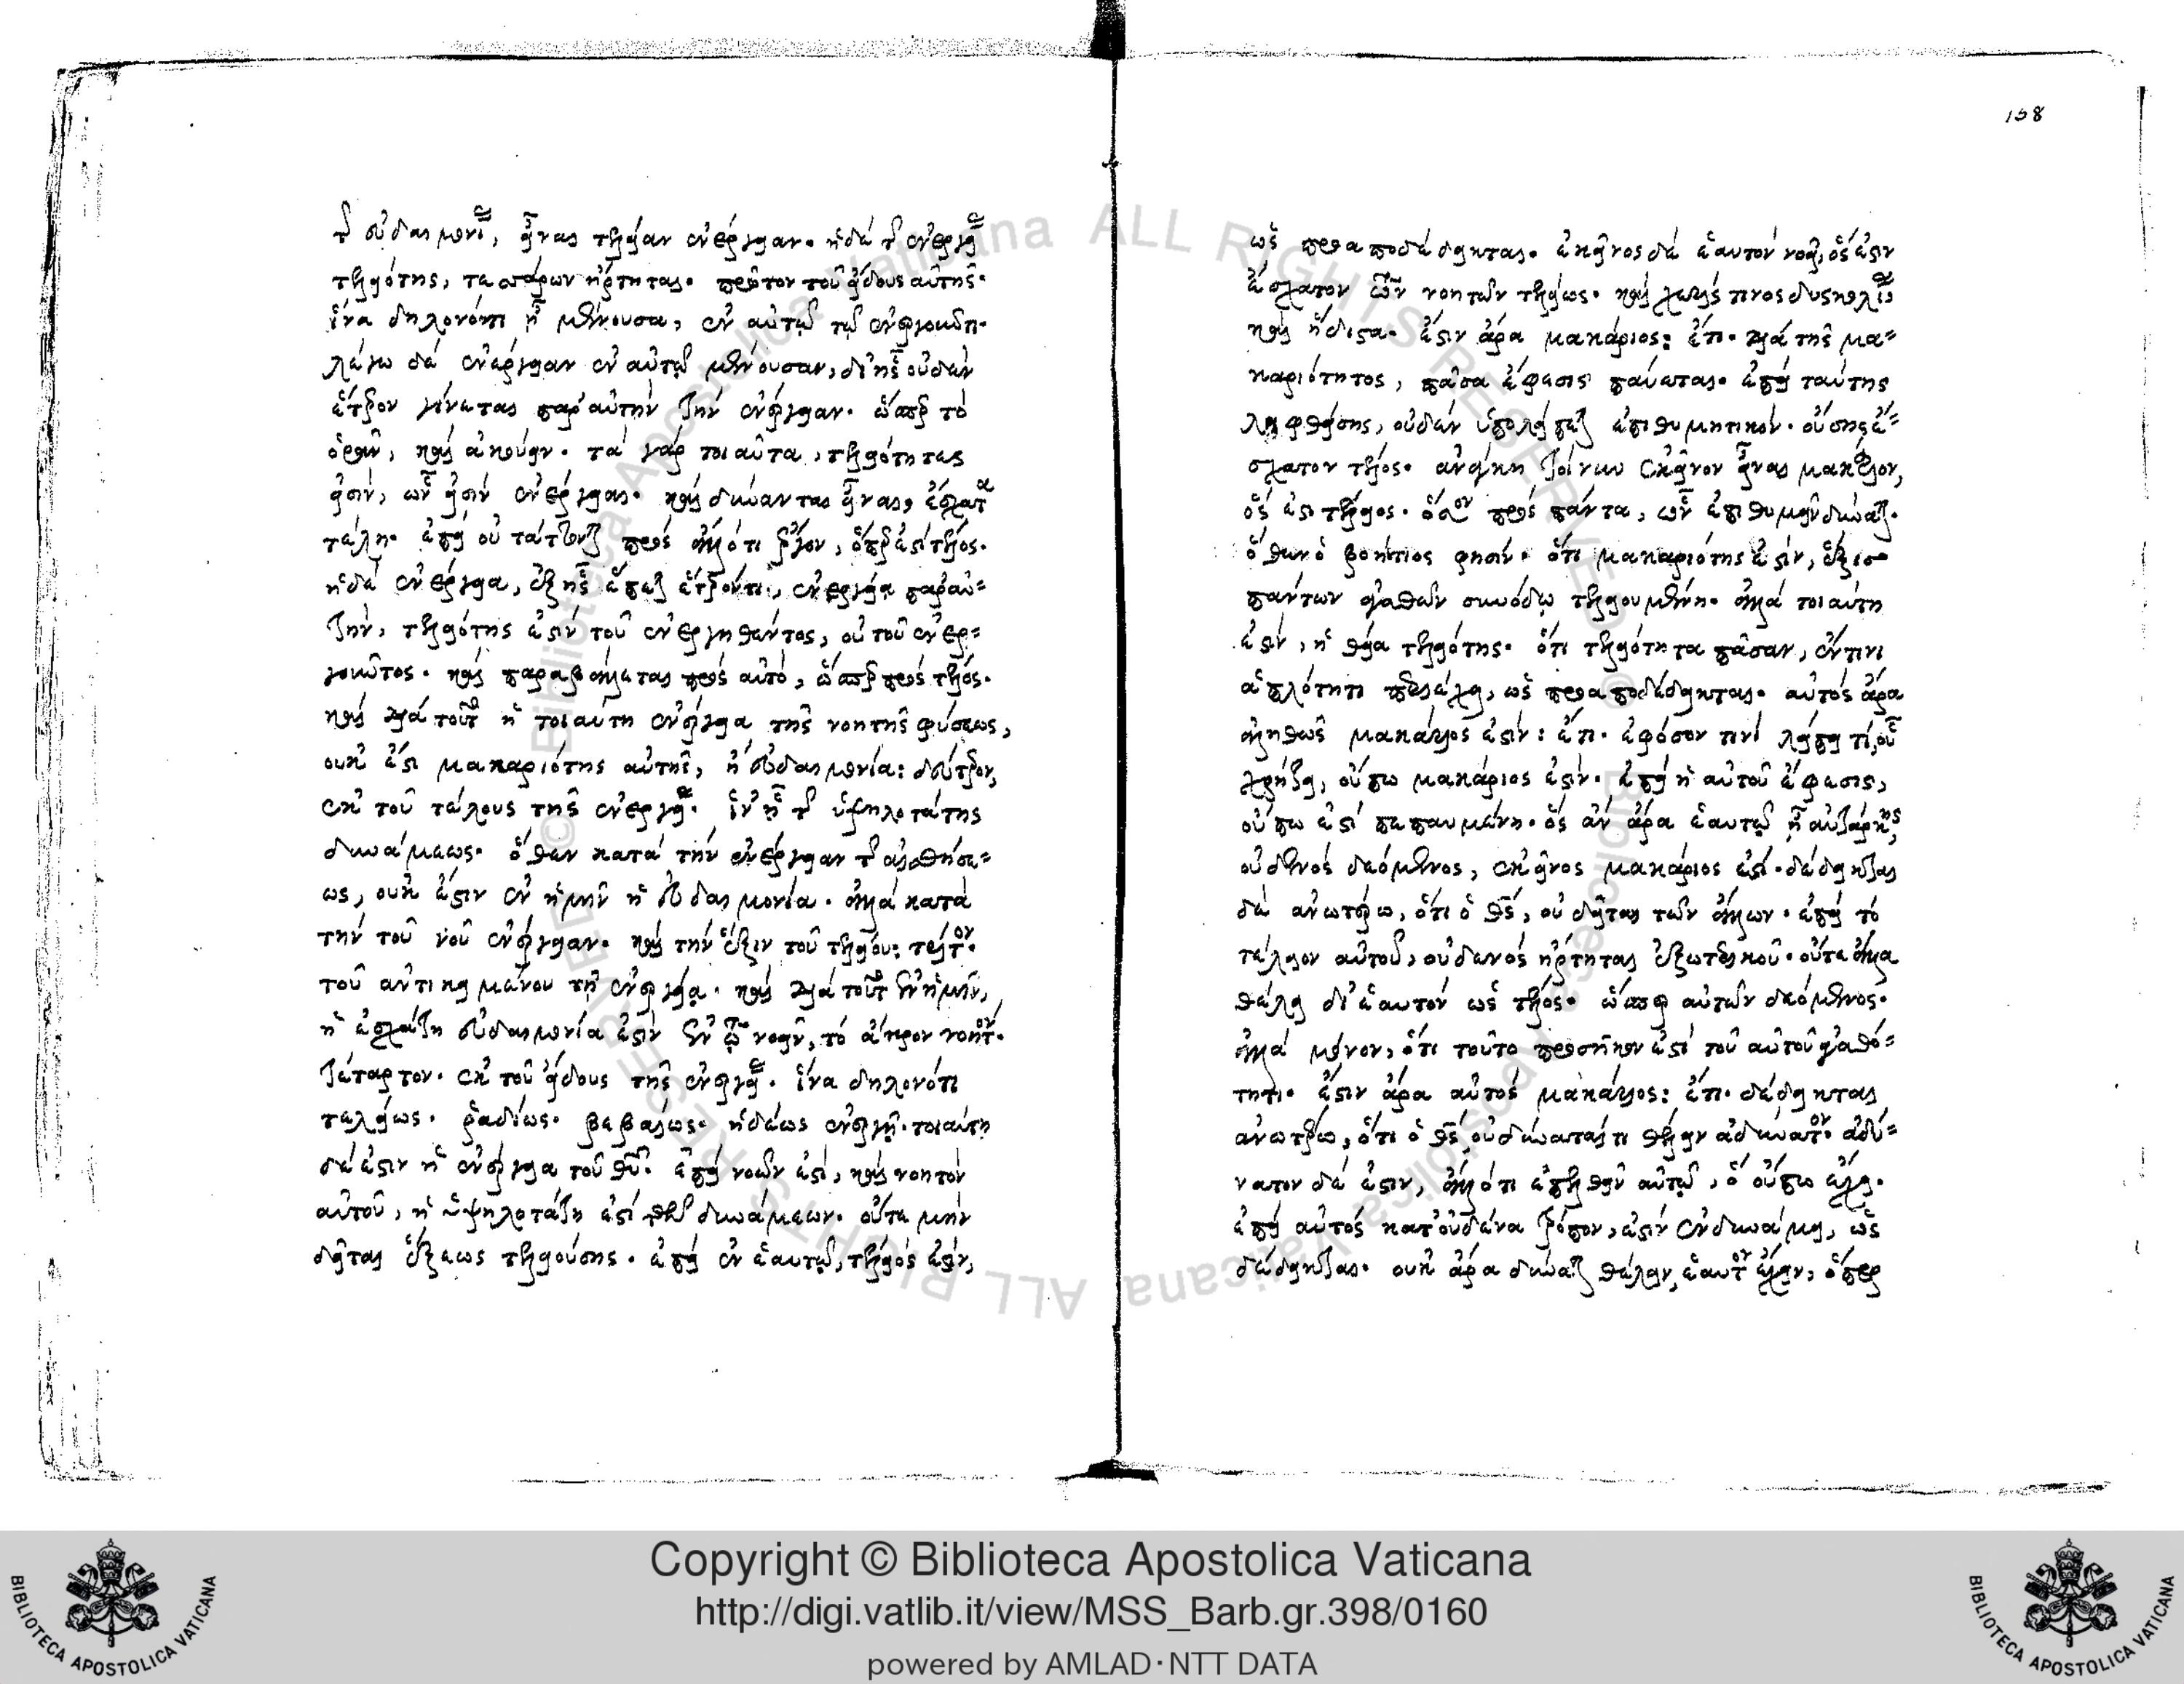 τ εὐδαιμονίας, εἶναι τελείαν ἐνέργειαν. ἡ δὲ τ ἐνεργείας
τελειότης, τεσσάρων ἤρτηται. πρῶτον τοῦ εἴδους αὐτῆς.
ἵνα δηλονότι ᾖ μένουσα, ἐν αὐτῷ τῷ ἐνεργοῦντι.
λέγω δὲ ἐνέργειαν ἐν αὐτῷ μένουσαν, δι' ἧς οὐδὲν
ἕτερον γίνεται παρ' αὐτὴν τὴν ἐνέργειαν. ὥσπερ τὸ
ὁρᾶν, καὶ ἀκούειν. τὰ γὰρ τοιαῦτα, τελειότητες
εἰσὶν, ὧν εἰσὶν ἐνέργειαι. καὶ δύνανται εἶναι, ἔσχατα
τέλη. ἐπεὶ οὐ τάττονται πρὸς ἄλλό τι ἔργον, ὅπερ ἐστὶ τέλος.
ἡ δὲ ἐνέργεια, ἐξ ἧς ἕπεται ἕτερόν τι, ἐνεργείᾳ παρ' αὐ=
τὴν, τελειότης ἐστὶν τοῦ ἐνεργηθέντος, οὐ τοῦ ἐνερ=
γοῦντος. καὶ παραβάλλεται πρὸς αὐτὸ, ὥσπερ πρὸς τέλος.
καὶ διὰ τοῦτο ἡ τοιαύτη ἐνέργεια τῆς νοητῆς φύσεως,
οὐκ ἔστι μακαριότης αὐτῆς, ἢ εὐδαιμονία: δεύτερον,
ἐκ τοῦ τέλους τῆς ἐνεργείας. ἵν' ᾖ τ ὑψηλοτάτης
δυνάμεως. ὅθεν κατὰ τὴν ἐνέργειαν τ αἰσθήσε=
ως, οὐκ ἔστιν ἐν ἡμῖν ἡ εὐδαιμονία. ἀλλὰ κατὰ
τὴν τοῦ νοῦ ἐνέργειαν. καὶ τὴν ἕξιν τοῦ τελείου: τρίτον.
τοῦ ἀντικειμένου τῇ ἐνεργείᾳ. καὶ διὰ τοῦτο ἐν ἡμῖν,
ἡ ἐσχάτη εὐδαιμονία ἐστὶν ἐν τῷ νοεῖν, τὸ ἄκρον νοητόν.
τέταρτον. ἐκ τοῦ εἴδους τῆς ἐνεργείας. ἵνα δηλονότι
τελείως. ῥᾳδίως. βεβαίως. ἡδέως ἐνεργῇ. τοιαύτη
δέ ἐστιν ἡ ἐνέργεια τοῦ θῦ. ἐπεὶ νοῶν ἐστὶ, καὶ νοητὸν
αὐτοῦ, ἡ ὑψηλοτάτη ἐστὶ τῶν δυνάμεων. οὔτε μὴν
δεῖται ἕξεως τελειούσης. ἐπεὶ ἐν ἑαυτῷ, τέλειός ἐστιν,
158
ὡς προαποδέδεικται. ἐκεῖνος δὲ ἑαυτὸν νοεῖ, ὅς ἐστιν
ἔσχατον τῶν νοητῶν τελείως. καὶ χωρίς τινος δυσκολίας
καὶ ἥδιστα. ἔστιν ἄρα μακάριος: ἔτι. διὰ τῆς μα=
καριότητος, πᾶσα ἔφεσις παύεται. ἐπεὶ ταύτης
ληφθείσης, οὐδὲν ὑπολείπεται ἐπιθυμητικὸν. οὔσης ἐ=
σχατον τέλος. ἀνάγκη τοίνυν ἐκεῖνον εἶναι μακάριον,
ὅς ἐστι τέλειος. ὅσον πρὸς πάντα, ὧν ἐπιθυμεῖν δύναται.
ὅθεν ὁ βοήτιος φησὶν. ὅτι μακαριότης ἐστὶν, ἕξις
πάντων ἀγαθῶν συνόδῳ τελειουμένη. ἀλλὰ τοιαύτη
ἐστὶν, ἡ θεία τελειότης. ὅτι τελειότητα πᾶσαν, ἔν τινι
ἁπλότητι περιέχει, ὡς προαποδέδεικται. αὐτὸς ἄρα
ἀληθῶς μακάριος ἐστίν: ἔτι. ἐφόσον τινὶ λείπει τί, οὗ
χρῄζει, οὔπω μακάριος ἐστίν. ἐπεὶ ἡ αὐτοῦ ἔφεσις,
οὔπω ἐστὶ πεπαυμένη. ὃς ἂν ἄρα ἑαυτῷ ᾖ αὐτάρκης,
οὐδενὸς δεόμενος, ἐκεῖνος μακάριος ἐστί. δέδεικται
δὲ ἀνωτέρω, ὅτι ὁ θς, οὐ δεῖται τῶν ἄλλων. ἐπεὶ τὸ
τέλειον αὐτοῦ, οὐδενὸς ἤρτηται ἐξωτερικοῦ. οὔτε ἄλλα
θέλει δι' ἑαυτὸν ὡς τέλος. ὥσπερ αὐτῶν δεόμενος.
ἀλλὰ μόνον, ὅτι τοῦτο προσῆκον ἐστὶ τοῦ αὐτοῦ ἀγαθό=
τητι. ἔστιν ἄρα αὐτὸς μακάριος: ἔτι. δέδεικται
ἀνωτέρω, ὅτι ὁ θς οὐ δύναταί τι θέλειν ἀδύνατον. ἀδύ=
νατον δέ ἐστιν, ἄλλό τι ἐπελθεῖν αὐτῷ, ὃ οὔπω ἔχει.
ἐπεὶ αὐτὸς κατ' οὐδένα τρόπον, ἐστὶν ἐν δυνάμει, ὡς
δέδεικται. οὐκ ἄρα δύναται θέλειν, ἑαυτὸν ἔχειν, ὅπερ